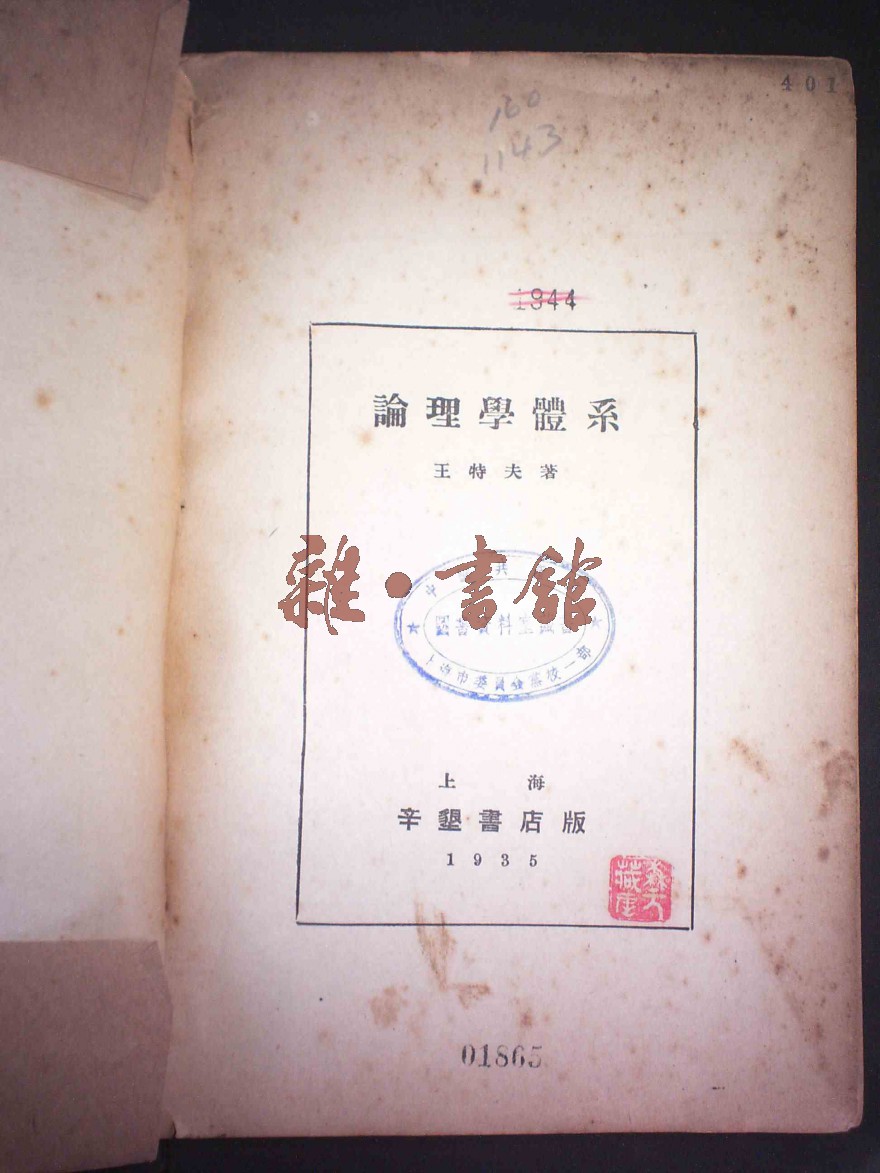 401
160
1143
1944
論理學體系
王特夫著
雜·書館
上海市委員會黨校一部
上海
辛墾書店版
1935
01865